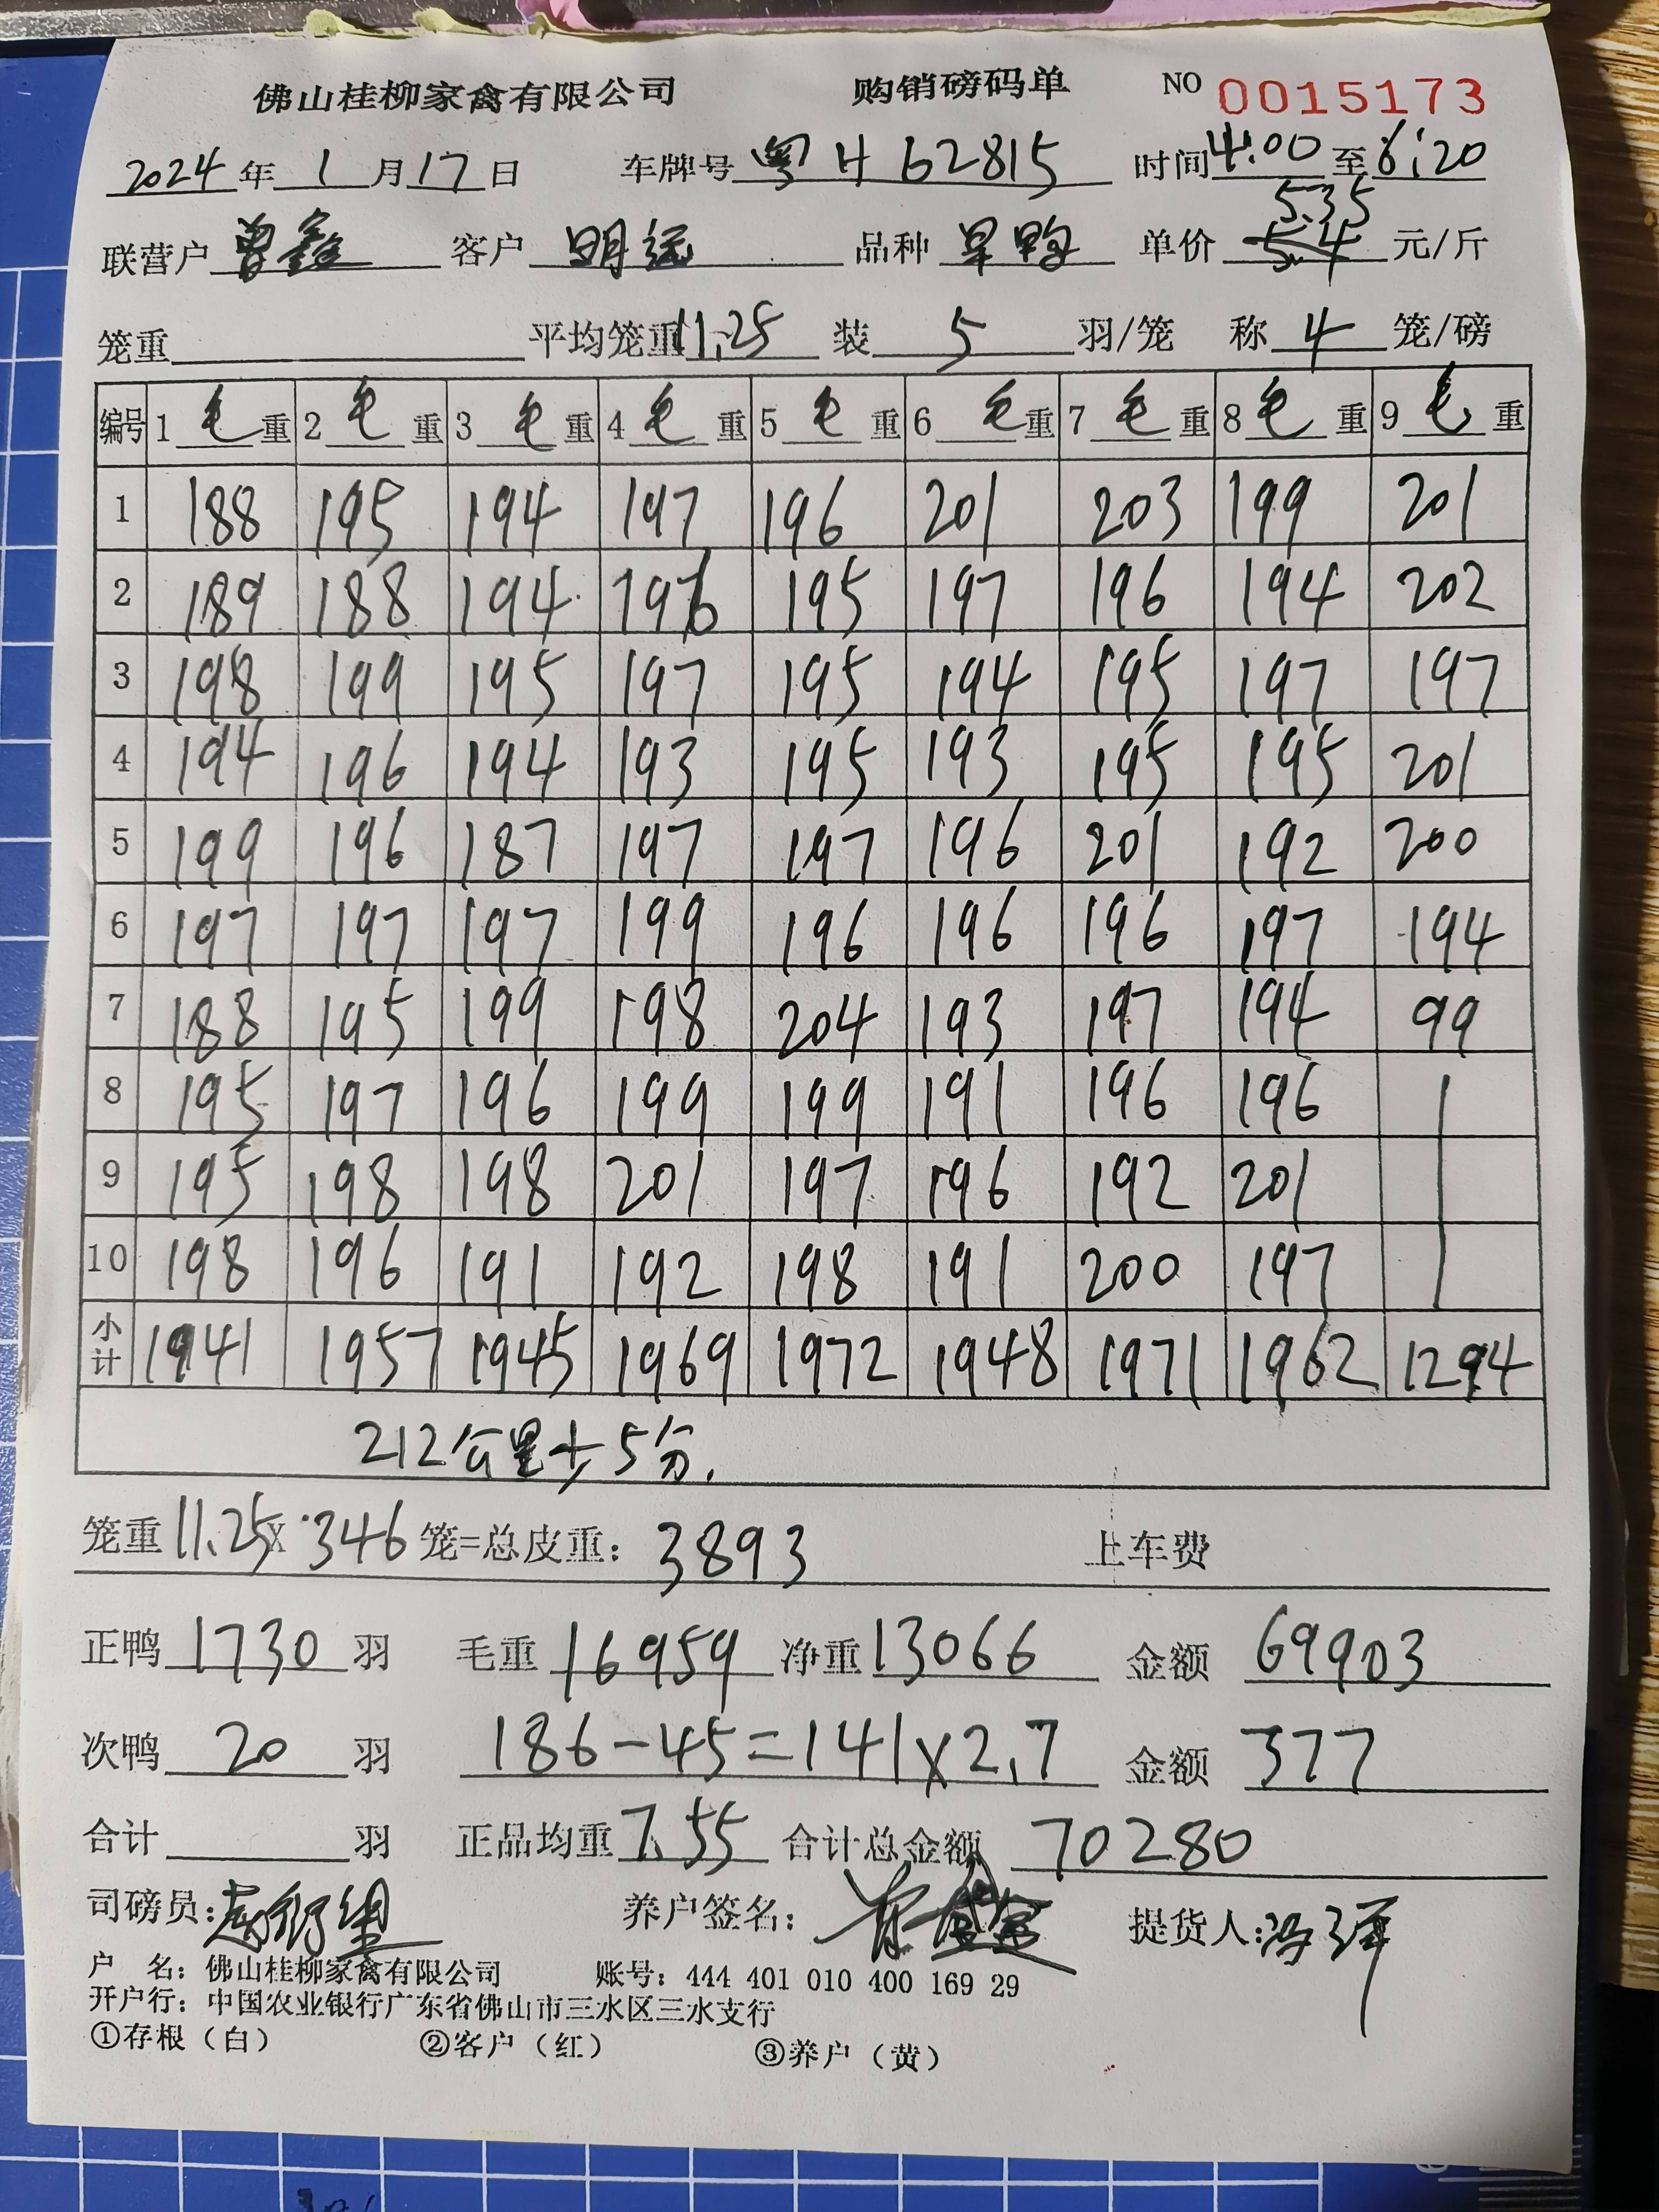 佛山桂柳家禽有限公司 购销磅码单 NO 0015173
2024年1月17日 车牌号 粤H62815 时间4:00至6:20
5.35
联营户 曾鑫 客户 明远 品种 旱鸭 单价 5.4 元/斤
笼重 平均笼重11.25 装 5 羽/笼 称 4 笼/磅
编号 1毛重 2毛重 3毛重 4毛重 5毛重 6毛重 7毛重 8毛重 9毛重
1 188 195 194 197 196 201 203 199 201
2 189 188 194 196 195 197 196 194 202
3 198 199 195 197 195 194 195 197 197
4 194 196 194 193 195 193 195 195 201
5 199 196 187 197 197 196 201 192 200
6 197 197 197 199 196 196 196 197 194
7 188 195 199 198 204 193 197 194 99
8 195 197 196 199 199 191 196 196
9 195 198 198 201 197 196 192 201
10 198 196 191 192 198 191 200 197
小计 1941 1957 1945 1969 1972 1948 1971 1962 1294
212公里 5分.
笼重11.25X346笼=总皮重: 3893 上车费
正鸭 1730 羽 毛重 16959 净重 13066 金额 69903
次鸭 20 羽 186-45=141×2.7 金额 377
合计 羽 正品均重 7.55 合计总金额 70280
司磅员: 养户签名: 提货人:
户 名: 佛山桂柳家禽有限公司 账号: 444 401 010 400 169 29
开户行: 中国农业银行广东省佛山市三水区三水支行
①存根(白) ②客户(红) ③养户(黄)